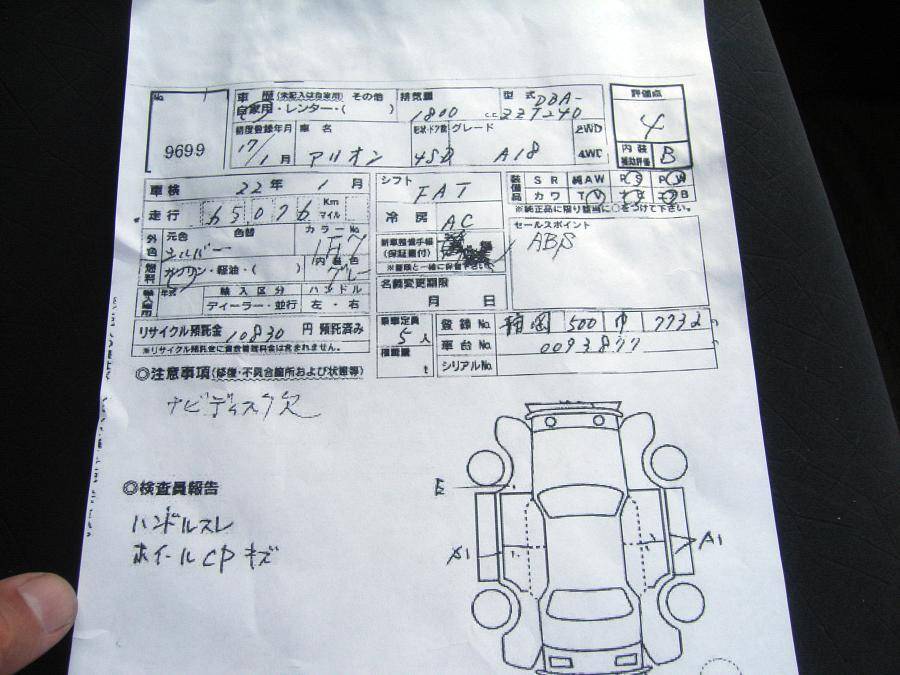 No.
9699
車歴 (未記入は自家用) その他
自家用・レンター・( )
排気量 1800 cc
型式 DBA-
ZZT240
評価点
4
初度登録年月
17/1月
車名
アリオン
形状・ドア数
4SD
グレード
A18
2WD
4WD
内装
補助評価
B
車検 22年 1月
走行 65076 Km マイル
外色 元色 色替 カラーNo.
シルバー
1F7
内装色
グレー
燃料 ガソリン・軽油・( )
輸入車用 年式 輸入区分 ハンドル
ディーラー・並行 左・右
リサイクル預託金 10830 円 預託済み
※リサイクル預託金に資金管理料金は含まれません。
シフト
FAT
冷房
AC
新車整備手帳
(保証書付)
※書類と一緒に保管下さい
名義変更期限
月 日
乗車定員
5人
積載量
t
装備品 SR 純AW PS PW
カワ TV
※純正品に限り該当に○をつけて下さい。
セールスポイント
ABS
登録No. 静岡 500 7732
車台No. 0093877
シリアルNo.
◎注意事項(修復・不具合箇所および状態等)
ナビディスク欠
◎検査員報告
ハンドルスレ
ホイールCPキズ
E
A1
A1